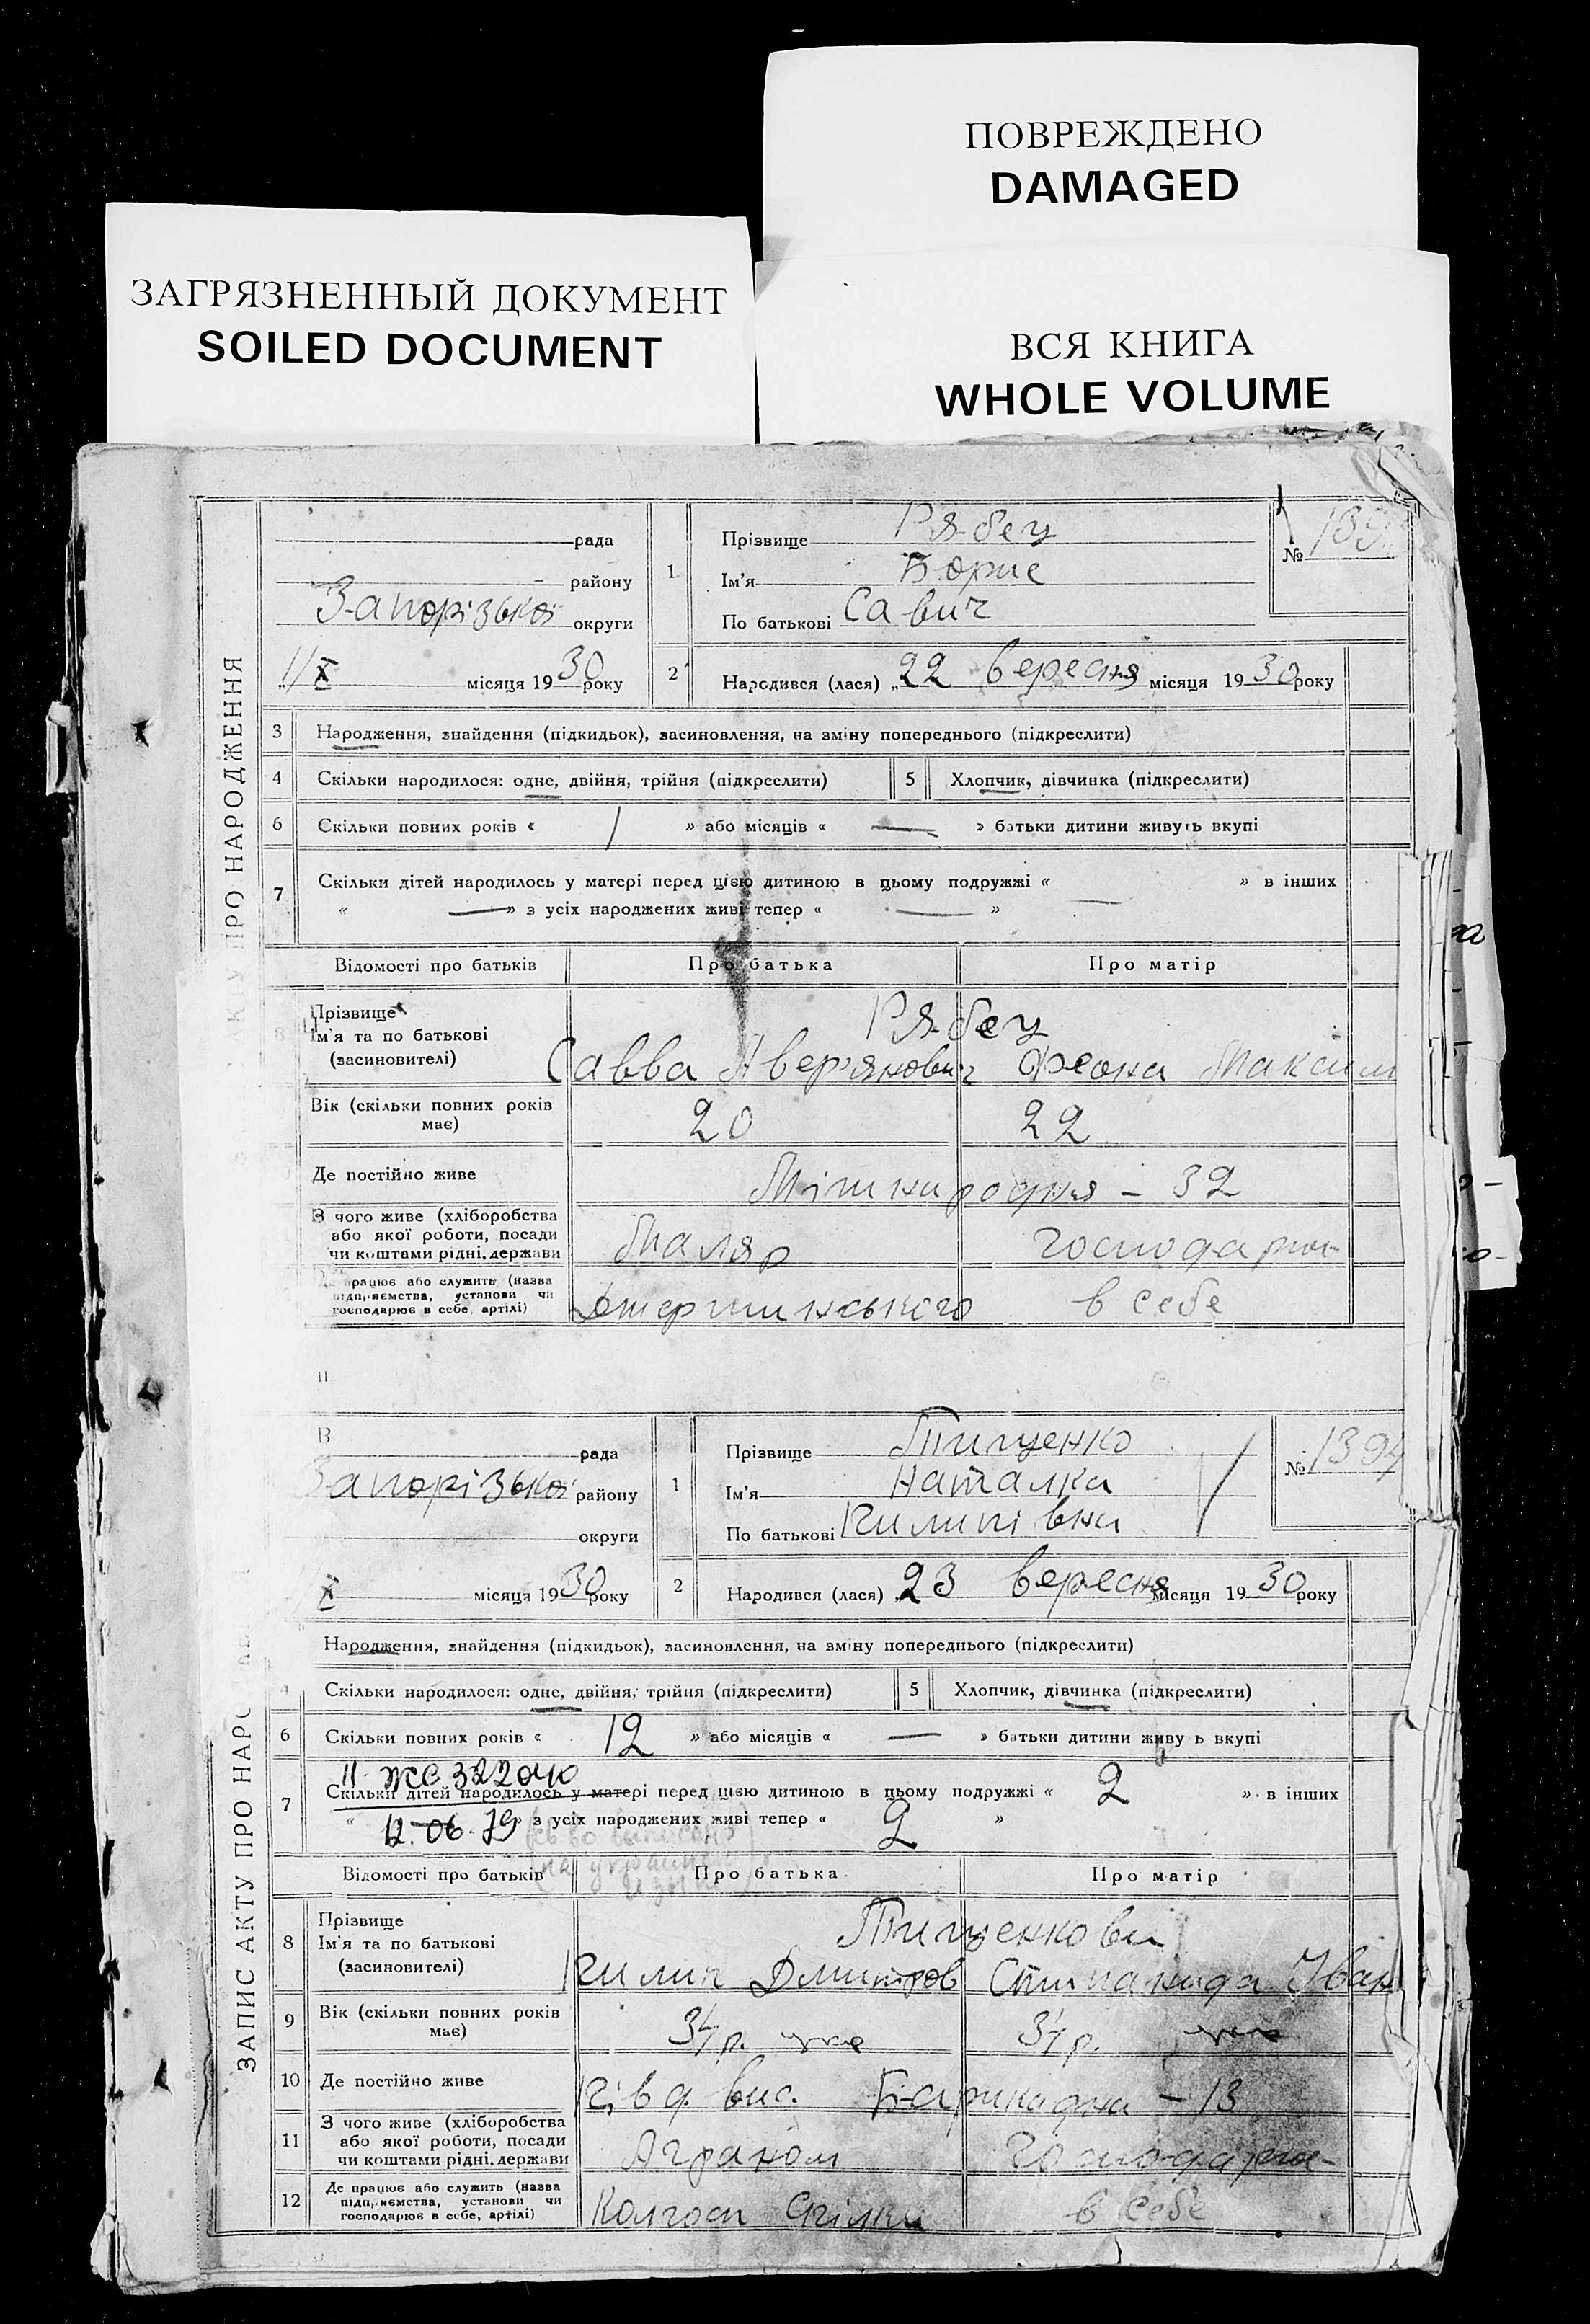 ПОВРЕЖДЕНО
DAMAGED
ЗАГРЯЗНЕННЫЙ ДОКУМЕНТ
SOILED DOCUMENT
ВСЯ КНИГА
WHOLE VOLUME
ПРО НАРОДЖЕННЯ
рада
району
Запорізької округи
11/X місяця 1930 року
1 Прізвище Рябец
Ім'я Борис
По батькові Савич
№ 139
2 Народився (лася) „22 вересня місяця 1930 року
3 Народження, знайдення (підкидьок), засиновлення, на зміну попереднього (підкреслити)
4 Скільки народилося: одне, двійня, трійня (підкреслити) 5 Хлопчик, дівчинка (підкреслити)
6 Скільки повних років « 1 » або місяців « — » батьки дитини живуть вкупі
7 Скільки дітей народилось у матері перед цією дитиною в цьому подружжі « — » в інших
« — » з усіх народжених живі тепер « — »
Відомості про батьків Про батька Про матір
8 Прізвище Рябец
Ім'я та по батькові
(засиновителі) Савва Авер'янович Феона Максим
Вік (скільки повних років
має) 20 22
Де постійно живе – 32
З чого живе (хліборобства
або якої роботи, посади
чи коштами рідні, держави Маляр господарює
працює або служить (назва
підприємства, установи чи
господарює в себе, артілі) в себе
рада
Запорізької району
округи
X місяця 1930 року
1 Прізвище Тищенко
Ім'я Наталка
По батькові Килипівна
№ 1394
2 Народився (лася) „23 вересня місяця 1930 року
Народження, знайдення (підкидьок), засиновлення, на зміну попереднього (підкреслити)
4 Скільки народилося: одне, двійня, трійня (підкреслити) 5 Хлопчик, дівчинка (підкреслити)
6 Скільки повних років « 12 » або місяців « — » батьки дитини живу ь вкупі
II-ЖС 322040
7 Скільки дітей народилось у матері перед цією дитиною в цьому подружжі « 2 » в інших
« 12.06.79 » з усіх народжених живі тепер « 2 »
Відомості про батьків Про батька Про матір
ЗАПИС АКТУ ПРО НАРО
8 Прізвище Тищенкови
Ім'я та по батькові
(засиновителі) Килип Дмитров Степанида Іван
9 Вік (скільки повних років
має) 34 р. 34 р.
10 Де постійно живе Барикадна – 13
11 З чого живе (хліборобства
або якої роботи, посади
чи коштами рідні, держави Аграном господарює
12 Де працює або служить (назва
підприємства, установи чи
господарює в себе, артілі) Колгосп в себе